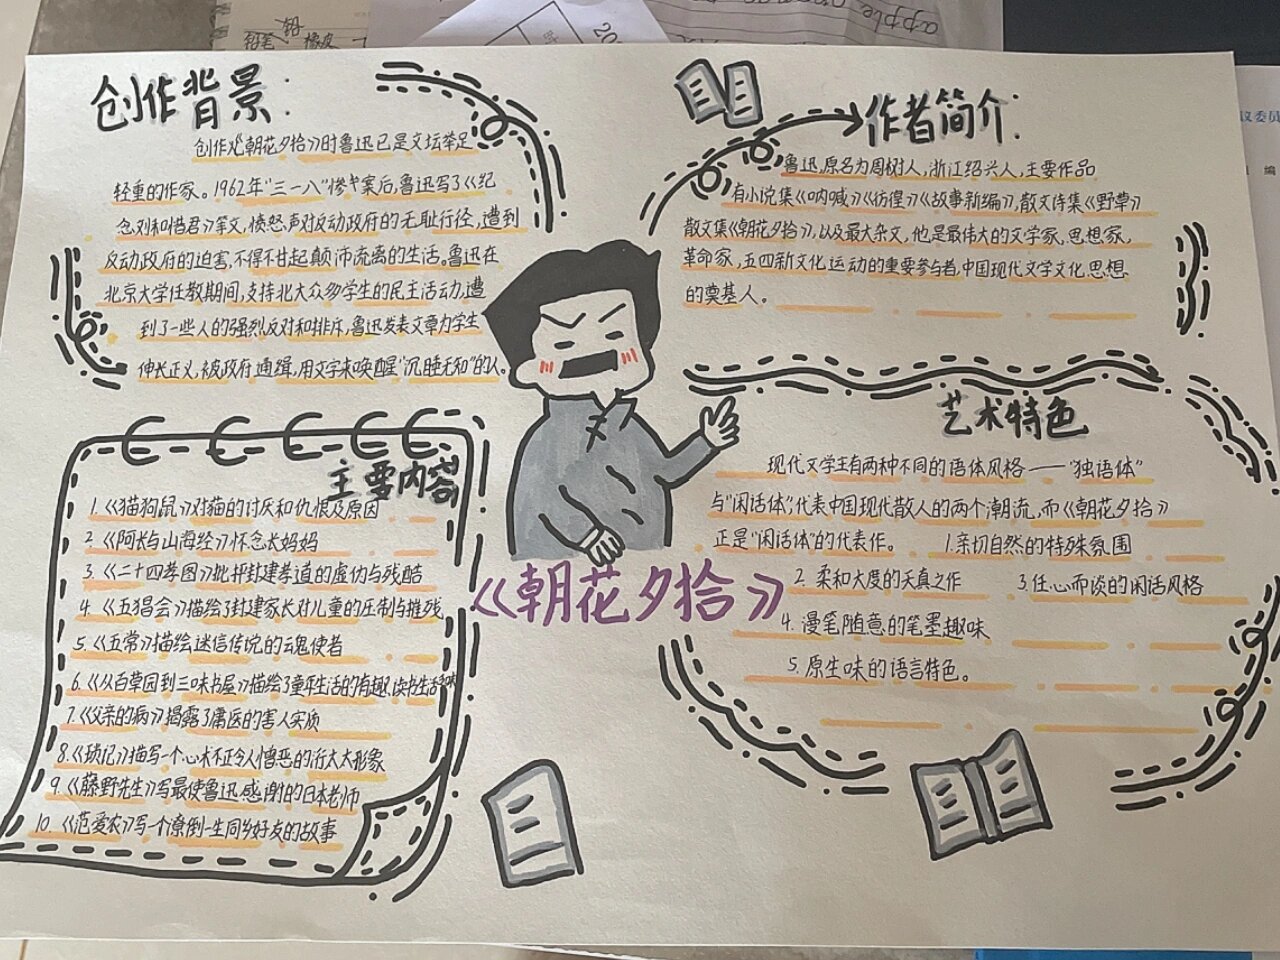 创作背景：
创作《朝花夕拾》时鲁迅已是文坛举足
轻重的作家。1962年"三一八"惨案后，鲁迅写了《纪
念刘和惜君》等文，愤怒声对反动政府的无耻行径，遭到
反动政府的迫害，不得不甘起颠沛流离的生活。鲁迅在
北京大学任教期间，支持北大众多学生的民主活动，遭
到了一些人的强烈反对和排斥，鲁迅发表文章力学生
伸长正义，被政府通缉，用文字来唤醒"沉睡无知"的人。
作者简介：
鲁迅，原名为周树人，浙江绍兴人，主要作品
有小说集《呐喊》《彷徨》《故事新编》，散文诗集《野草》
散文集《朝花夕拾》，以及最大杂文，他是最伟大的文学家，思想家，
革命家，五四新文化运动的重要参与者，中国现代文学文化思想
的奠基人。
主要内容
1.《猫狗鼠》对猫的讨厌和仇恨及原因
2《阿长与山海经》怀念长妈妈
3.《二十四孝图》批评封建孝道的虚伪与残酷
4.《五猖会》描绘了封建家长对儿童的压制与摧残
5.《五常》描绘迷信传说的云鬼使者
6.《从百草园到三味书屋》描绘了童年生活的有趣，读书生活
7.《父亲的病》揭露了庸医的害人实质
8.《琐记》描写一个心术不正令人憎恶的衍太太形象
9.《藤野先生》写最使鲁迅感谢的日本老师
10.《范爱农》写一个潦倒一生同乡好友的故事
《朝花夕拾》
艺术特色
现代文学主有两种不同的语体风格——"独语体"
与"闲话体"，代表中国现代散人的两个潮流，而《朝花夕拾》
正是"闲话体"的代表作。 1.亲切自然的特殊氛围
2. 柔和大度的天真之作 3.任心而谈的闲话风格
4.漫笔随意的笔墨趣味
5.原生味的语言特色。
铅
铅笔 橡皮
apple
议委员
编